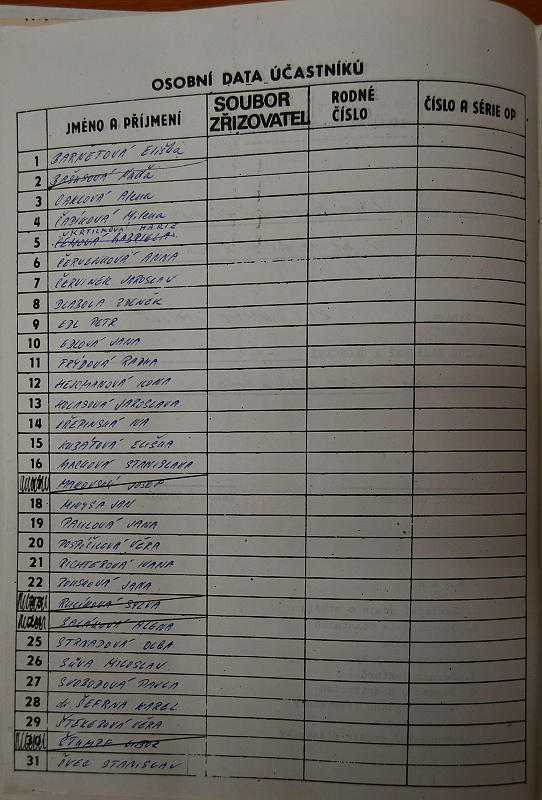 OSOBNÍ DATA ÚČASTNÍKŮ
JMÉNO A PŘÍJMENÍ SOUBOR ZŘIZOVATEL RODNÉ ČÍSLO ČÍSLO A SÉRIE OP
1 BARNETOVÁ Eliška
2
3 CARLOVÁ Alena
4 ČAPKOVÁ Milena
MARIE
5 GABRIELA
6 ČERVENKOVÁ ANNA
7 ČERVINEK JAROSLAV
8 DLABOLA ZDENEK
9 EDL PETR
10 EDLOVÁ JANA
11 FRYDOVÁ RADKA
12 HEJCMANOVÁ ILONA
13 KOLÁŘOVÁ JAROSLAVA
14 KŘEPINSKÁ IVA
15 KUBÁTOVÁ ELIŠKA
16 MACHOVÁ STANISLAVA
MAKOVSKÝ JOSEF
18 MIKYSA JAN
19 PAULOVÁ JANA
20 POSPÍŠILOVÁ VĚRA
21 RICHTEROVÁ IVANA
22 ROUSKOVÁ JANA
23 SYLVA
24 ALENA
25 STRNADOVÁ OLGA
26 SŮVA MILOSLAV
27 SVOBODOVÁ PAVLA
28 dr. ŠEFRNA KAREL
29 ŠTEKEROVÁ VĚRA
30 ŠTUMPF LIBOR
31 ŠVEC STANISLAV